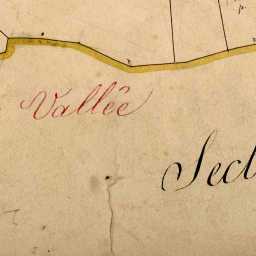 Vallée
Sect